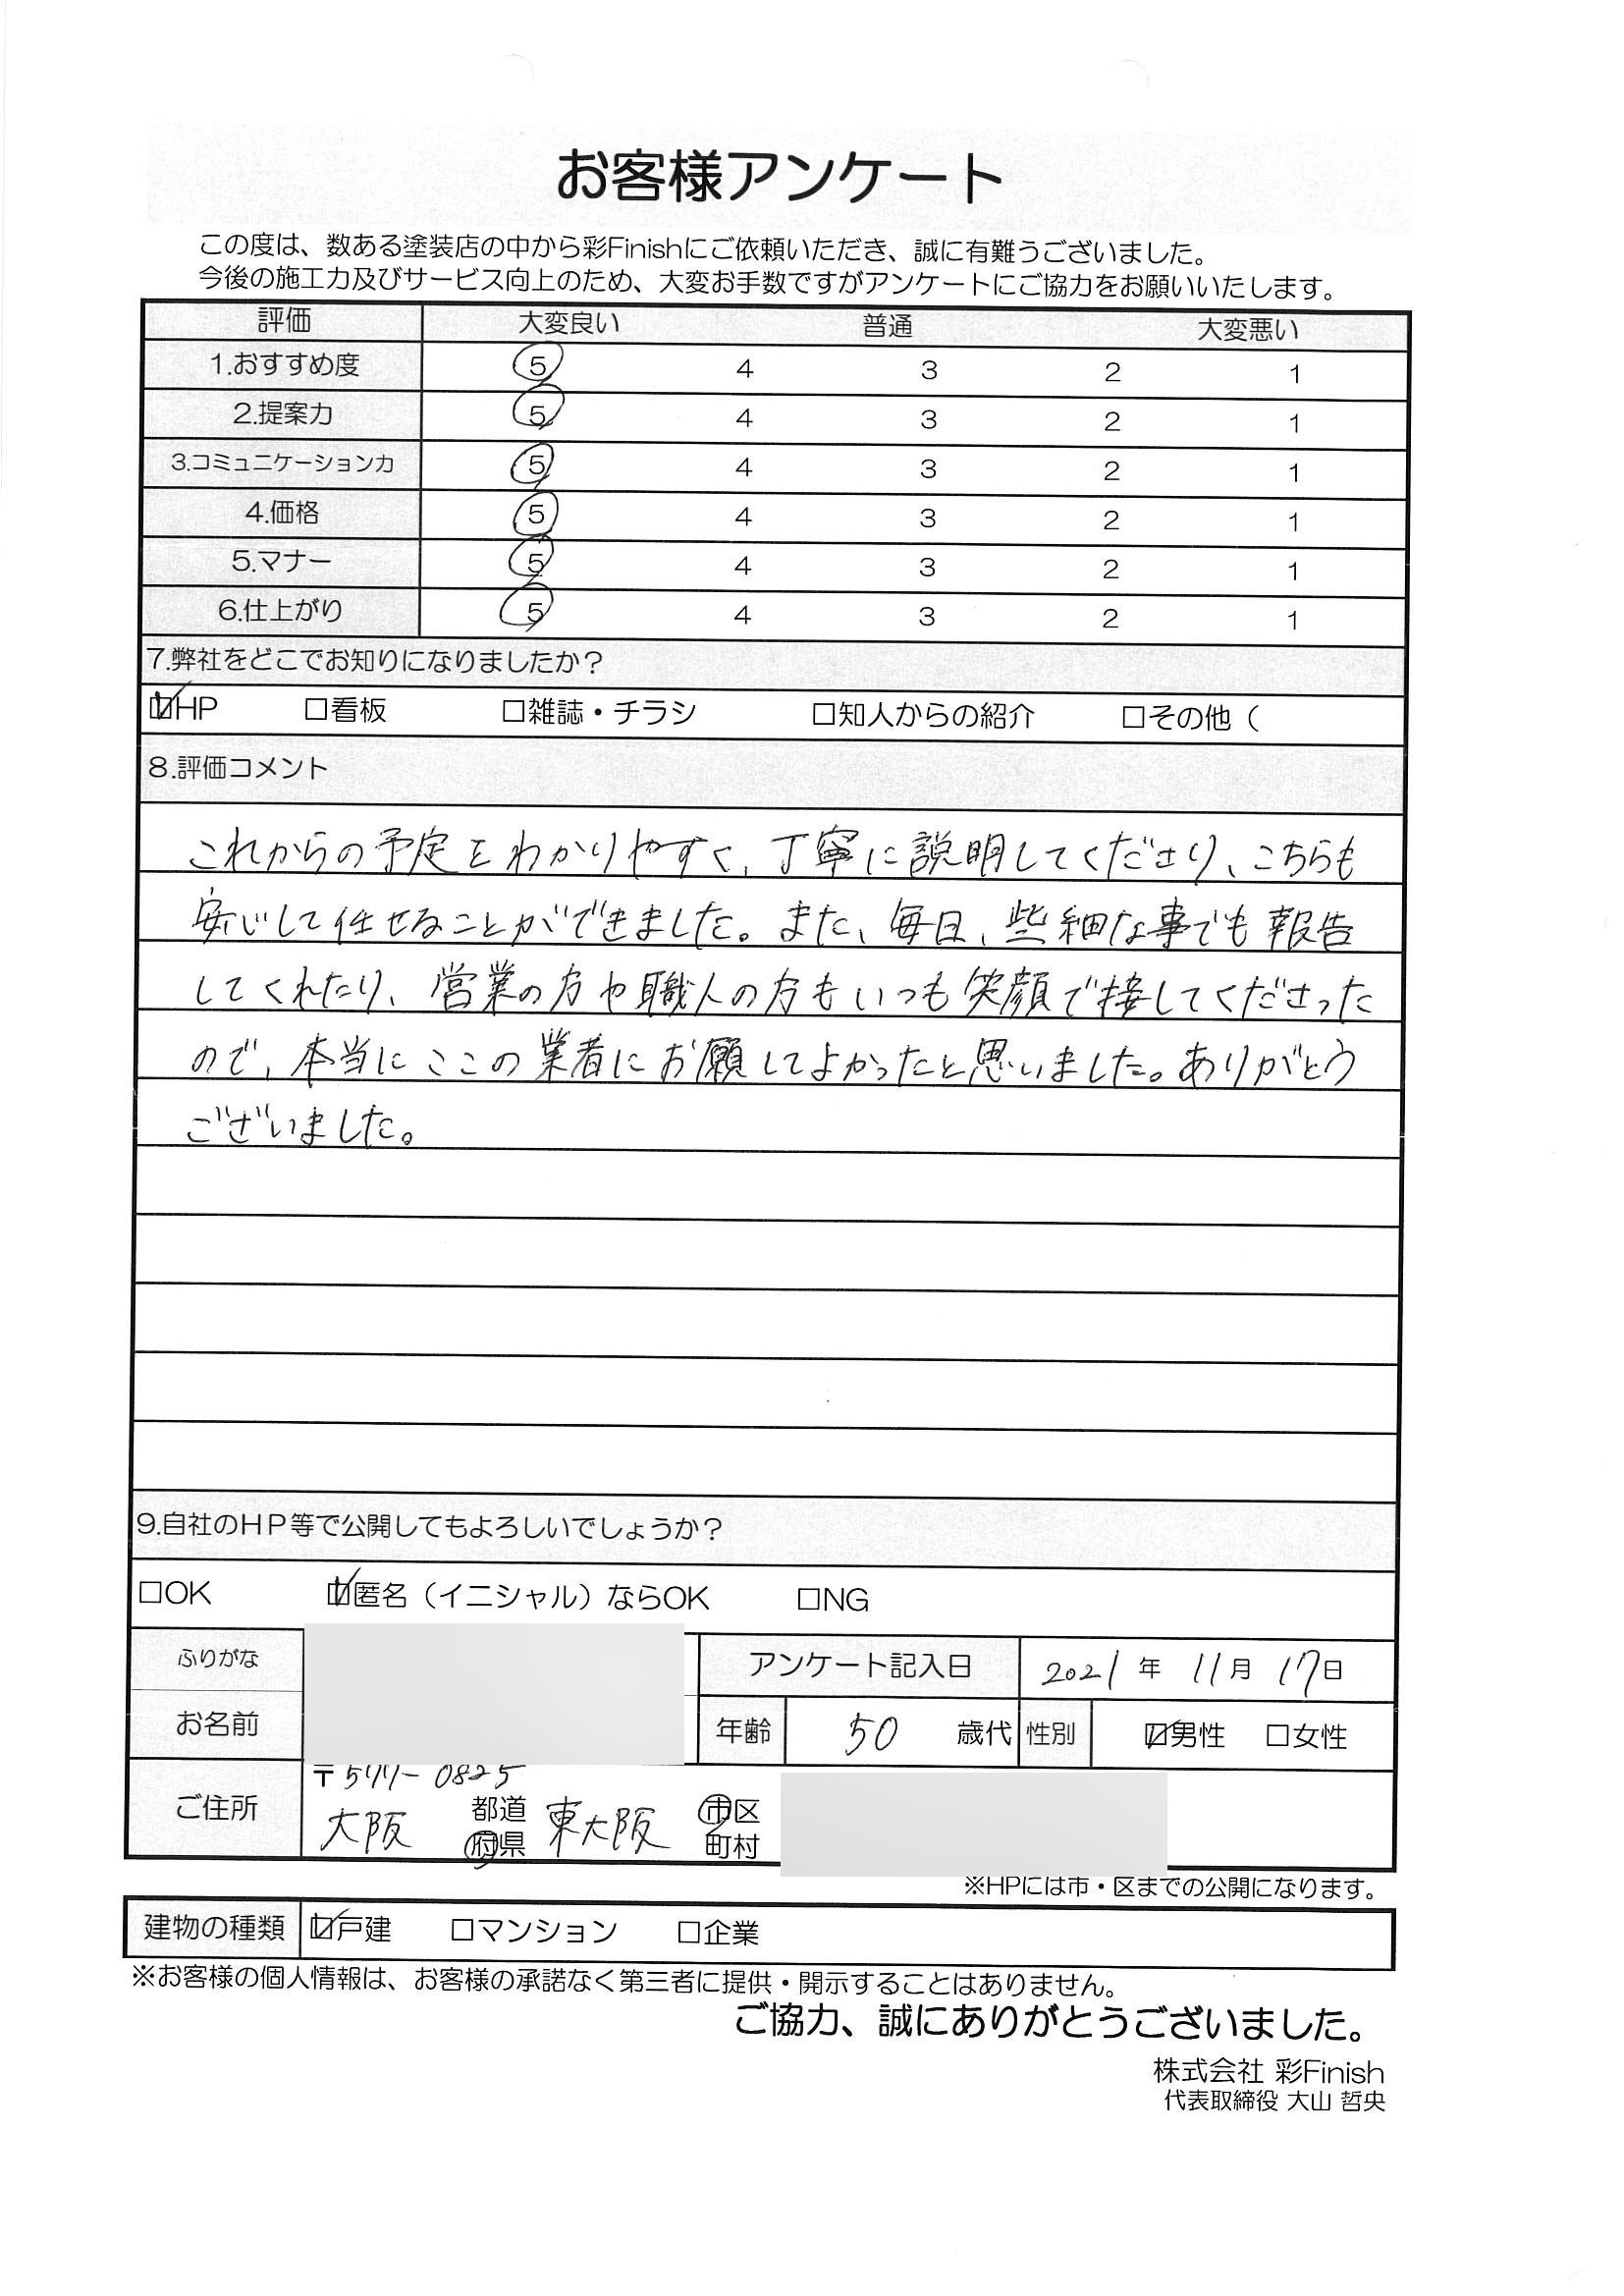 お客様アンケート
この度は、数ある塗装店の中から彩Finishにご依頼いただき、誠に有難うございました。
今後の施工力及びサービス向上のため、大変お手数ですがアンケートにご協力をお願いいたします。
評価 大変良い 普通 大変悪い
1.おすすめ度 5 4 3 2 1
2.提案力 5 4 3 2 1
3.コミュニケーション力 5 4 3 2 1
4.価格 5 4 3 2 1
5.マナー 5 4 3 2 1
6.仕上がり 5 4 3 2 1
7.弊社をどこでお知りになりましたか？
☑HP □看板 □雑誌・チラシ □知人からの紹介 □その他（
8.評価コメント
これからの予定をわかりやすく、丁寧に説明してくださり、こちらも
安心して任せることができました。また、毎日、些細な事でも報告
してくれたり、営業の方や職人の方もいつも笑顔で接してくださった
ので、本当にここの業者にお願してよかったと思いました。ありがとう
ございました。
9.自社のHP等で公開してもよろしいでしょうか？
□OK ☑匿名（イニシャル）ならOK □NG
ふりがな アンケート記入日 2021年 11月 17日
お名前 年齢 50 歳代 性別 ☑男性 □女性
ご住所 〒577-0825
大阪 都道府県 東大阪 市区町村
※HPには市・区までの公開になります。
建物の種類 ☑戸建 □マンション □企業
※お客様の個人情報は、お客様の承諾なく第三者に提供・開示することはありません。
ご協力、誠にありがとうございました。
株式会社 彩Finish
代表取締役 大山 哲央